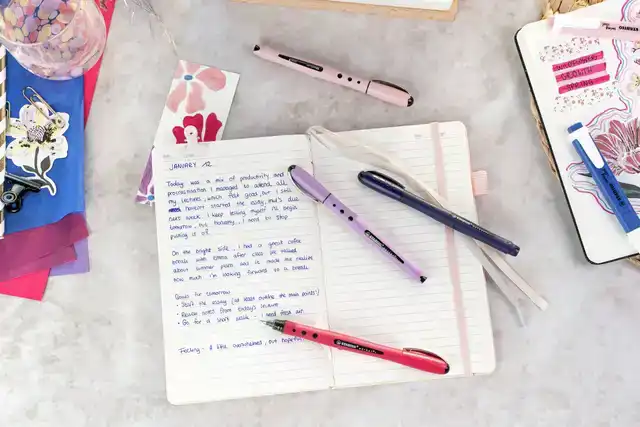 JANUARY 12
Today was a mix of productivity and
procrastination. I managed to attend all
my lectures, which felt good, but I still
haven't started the essay that's due
next week. I keep telling myself I'll begin
tomorrow, but honestly, I need to stop
putting it off.
On the bright side, I had a great coffee
break with Emma after class. We talked
about summer plans and it made me realize
how much I'm looking forward to a break
Goals for tomorrow
• Start the essay (at least outline the main points!)
• Review notes from today's lecture
• Go for a short walk - I need fresh air
Feeling: A little overwhelmed, but hopeful
WILDFLOWERS
GROWTH
SPRING
STABILO
STABILO